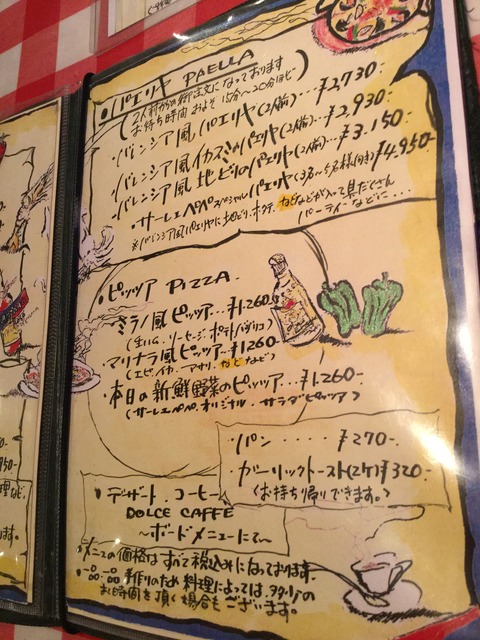 ・パエリヤ PAELLA
(2人前からの御注文になっております
お待ち時間 およそ 15分〜20分ほど)
・バレンシア風 パエリヤ(2人前)…¥2,730-.
・バレンシア風 イカスミのパエリヤ(2人前)…¥2,930-
・バレンシア風 地どりのパエリヤ(2人前)…¥3,150-
・サーレェペペスペシャルパエリヤ(3名〜5名様向き)¥4,950-
※バレンシア風パエリヤに地どり、ホタテ、などなどが入って具だくさん
パーティーなどに…
・ピッツァ PIZZA.
・ミラノ風ピッツァ…¥1,260-
(生ハム、ソーセージ、ポテト、バジリコ)
・マリナラ風ピッツァ…¥1260-
(エビ、イカ、アサリ、などなど)
・本日の新鮮野菜のピッツァ…¥1,260-
(サーレェペペ、オリジナル、サラダピッツァ)
・パン・・・・・¥270-.
・ガーリックトースト(2ケ)¥320-.
(お持ち帰りできます。)
・デザート、コーヒー
DOLCE CAFFE
〜ボードメニューにて〜
・メニューの価格はすべて税込みになっております。
・一品一品手作りのため 料理によっては、多少の
お時間を頂く場合もございます。